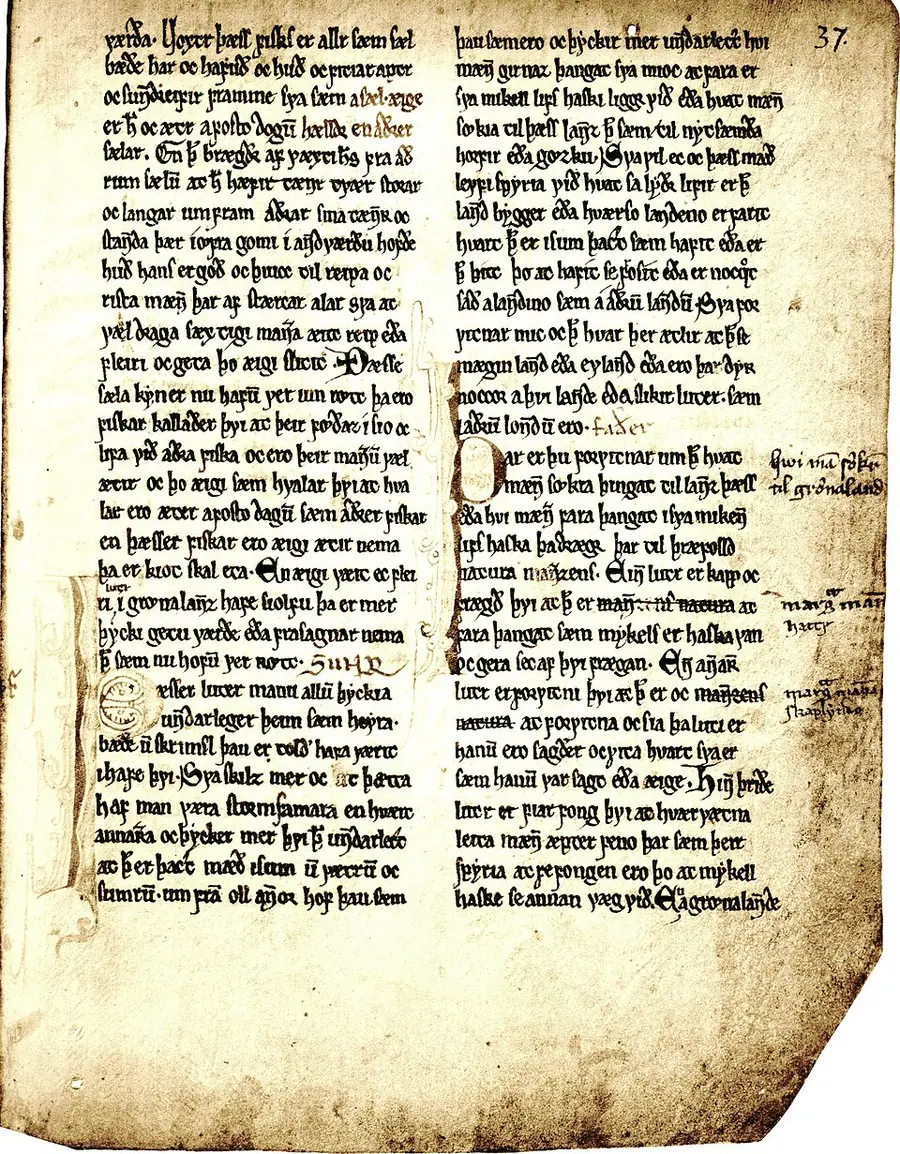 værða. Hovet þæss fisks er allt sæm sæl
bæðe har oc hafuð oc huð oc fitiar aptr
oc sunðierfir framme sva sæm a sæl. æige
er h̄ oc ætr a fosto dogū hællðr en aðrer
sælar. En þ̄ brægðr af væxti h̄s fra að
rum sælū at h̄ hæfir tænr tvær storar
oc langar umfram aðrar sma tæn̄r oc
stanða þær i ofra gomi i anðværðu hofðe
huð hans er goð oc þiucc til reipa oc
rista mæn̄ þar af stærcar alar sva at
væl draga sæxtigi manna æitt reip eða
fleiri oc geta þo æigi slitit. Þæsse
sæla kyn er nu hafū vet um rott þa ero
fiskar kallaðer þvi at þeir fœðaz i sio oc
lifa við aðra fiska oc ero þeir mannū vel
ætir oc þo æigi sæm hvalar þvi at hva
lar ero æter a fosto dagū sæm aðrer fiskar
en þæsser fiskar ero æigi ætir nema
þa er kiot skal eta. En æigi væit ec flei
luti
ri i gronalanz hafe siolfu þa er mer
þycki getu værðe eða frasagnar nema
þ̄ sæm nu hofū vet rott. Sunr
Þæsser luter manu allū þyckia
unðarleger þeim sæm høyra.
bæðe ū skrimsl þau er colð hafa værit
i hafe þvi. Sva skilz mer oc at þætta
haf man væra stormsamara en hvært
annara oc þycket mer þvi þ̄ unðarlect
at þ̄ er þact mæð isum ū vættrū oc
sumrū. umfrā oll an̄or hof þau sæm
37.
þau sæm ero oc þyckir mer unðarlect hvi
mæn̄ girnaz þangat sva mioc at fara er
sva mikell lifs haski ligge við eða hvat mæn̄
sœkia til þæss lanz þ̄ sæm til nytsæmða
horfir eða gozku. Sva vil ec oc þæss mæð
leyfi spyria við hvat sa lyðr lifir er þ̄
lanð bygger eða hværso lanðeno er farit
hvart þ̄ er isum þact sæm hafit eða er
þ̄ þitt þo at hafit se frosit eða er nocqt
sað a lanðino sæm a aðrū lanðū. Sva for
vitnar mic oc þ̄ hvart þer ætlit at þ̄ se
mægin lanð eða eyland eða ero þar dyr
noccor a þvi lanðe eða slikir luter. sæm
i aðrū londū ero. faðer
Þar er þu forvitnar um þ̄ hvat
mæn̄ sœkia þingat til lanz þæss
eða hvi mæn̄ fara þangat i sva miken̄
lifs haska þa drægr þar til þræfolld
natura man̄zens. Ein̄ lutr er kapp oc
frægð þvi at þ̄ er man̄z: ns natura at
fara þangat sæm mykels er haska van
oc gera sec af þvi frægan. En an̄ar
lutr er forvitni þvi at þ̄ er oc man̄zens
natura at forvitna oc sia þa luti er
hanū ero sagðer oc vita hvart sva er
sæm hanū var sagt eða æige. Hin̄ þriðe
lutr er fiar fong þvi at hvarvætna
leita mæn̄ æpter feno þar sæm þeir
spyria at fefongen ero þo at mykell
haske se annan væg við. En a gronalanðe
hwi mā søker
til grønaland